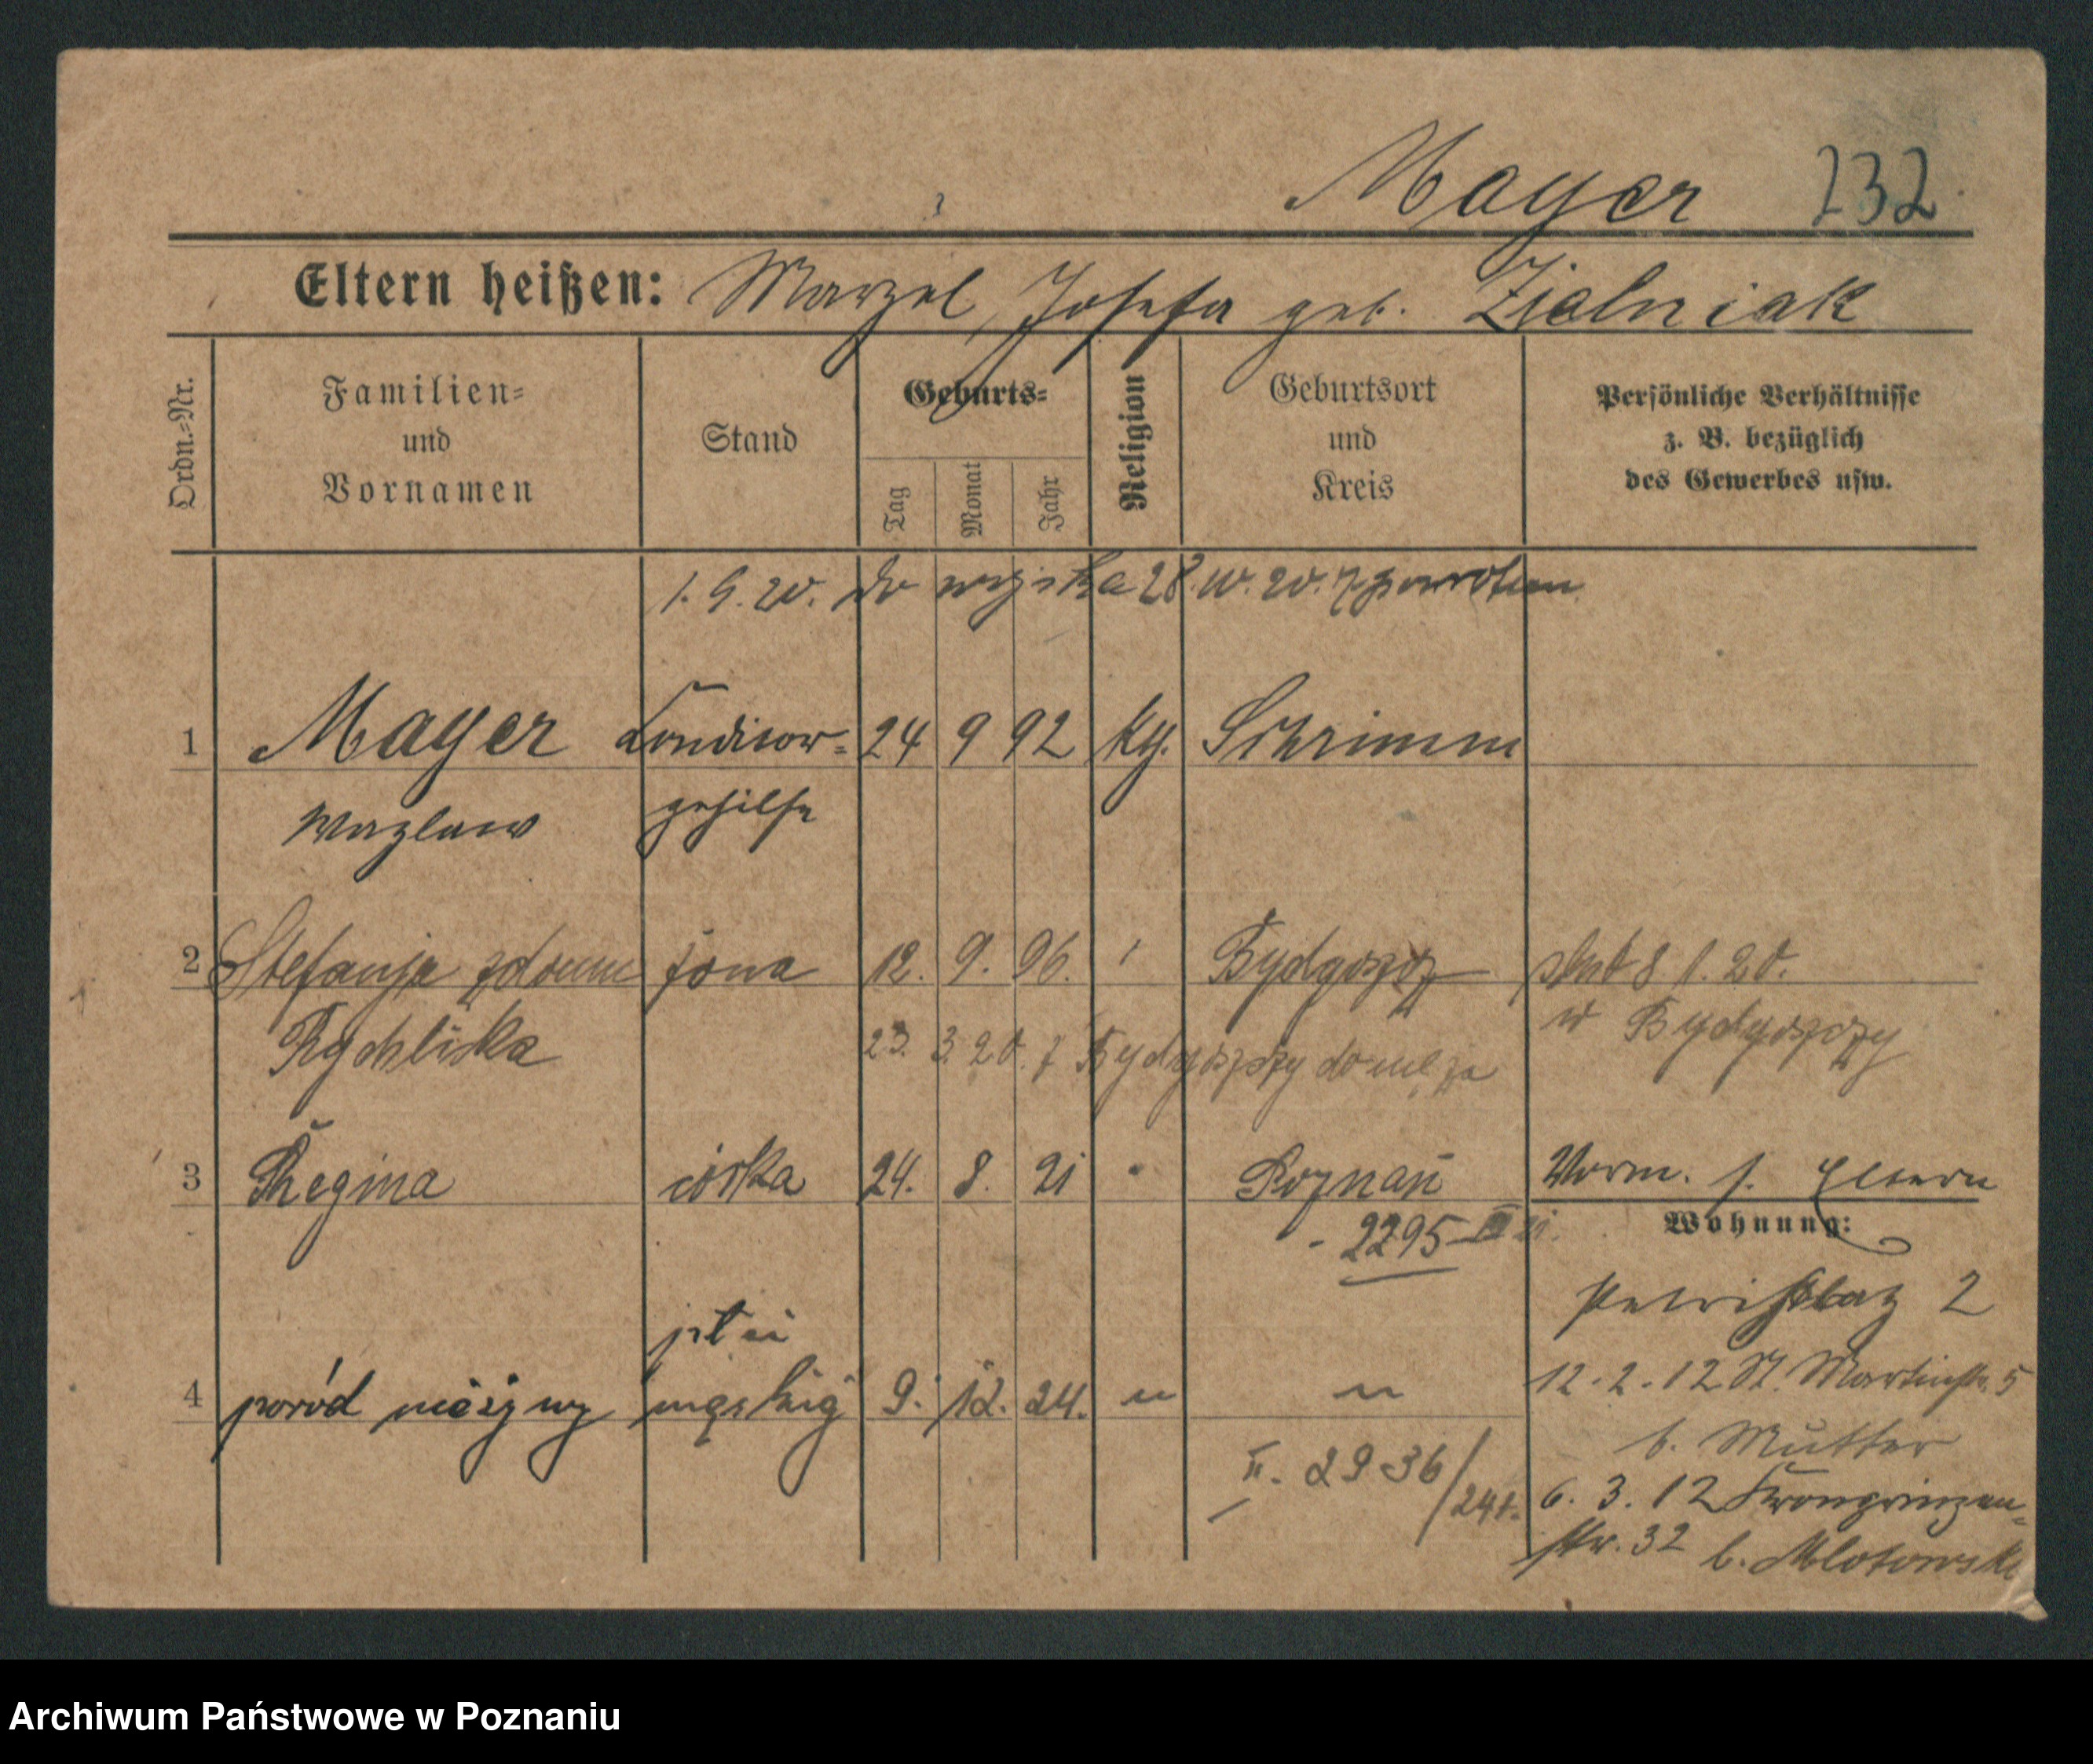 Mayer 232.
Eltern heißen: Marzel, Josefa geb. Zielniak
Ordn.-Nr.
Familien- und Vornamen
Stand
Geburts-
Tag
Monat
Jahr
Religion
Geburtsort und Kreis
Persönliche Verhältnisse
z. B. bezüglich
des Gewerbes usw.
1. 9. 20. do wojska 28. 10. 20. z powrotem
1 Mayer Konditor- 24 9 92 kth. Schrimm
Wazlaw gehilfe
2 Stefanja zdomu żona 12. 9. 96. Bydgoszcz ślub 8 1. 20.
Rychlicka w Bydgoszczy
23. 3. 20. z Bydgoszczy do męża
3 Regina córka 24. 8. 21 Poznań Vorm. s. Eltern
- 2295 III 21.
Wohnung:
Petriplatz 2
płci
4 poród nieżywy męskiej 9. 12. 24. " "
12. 2. 12 St. Martinstr. 5
b. Mutter
II. 2936/24
6. 3. 12 Kronprinzen-
str. 32 b. Mlotowski
Archiwum Państwowe w Poznaniu